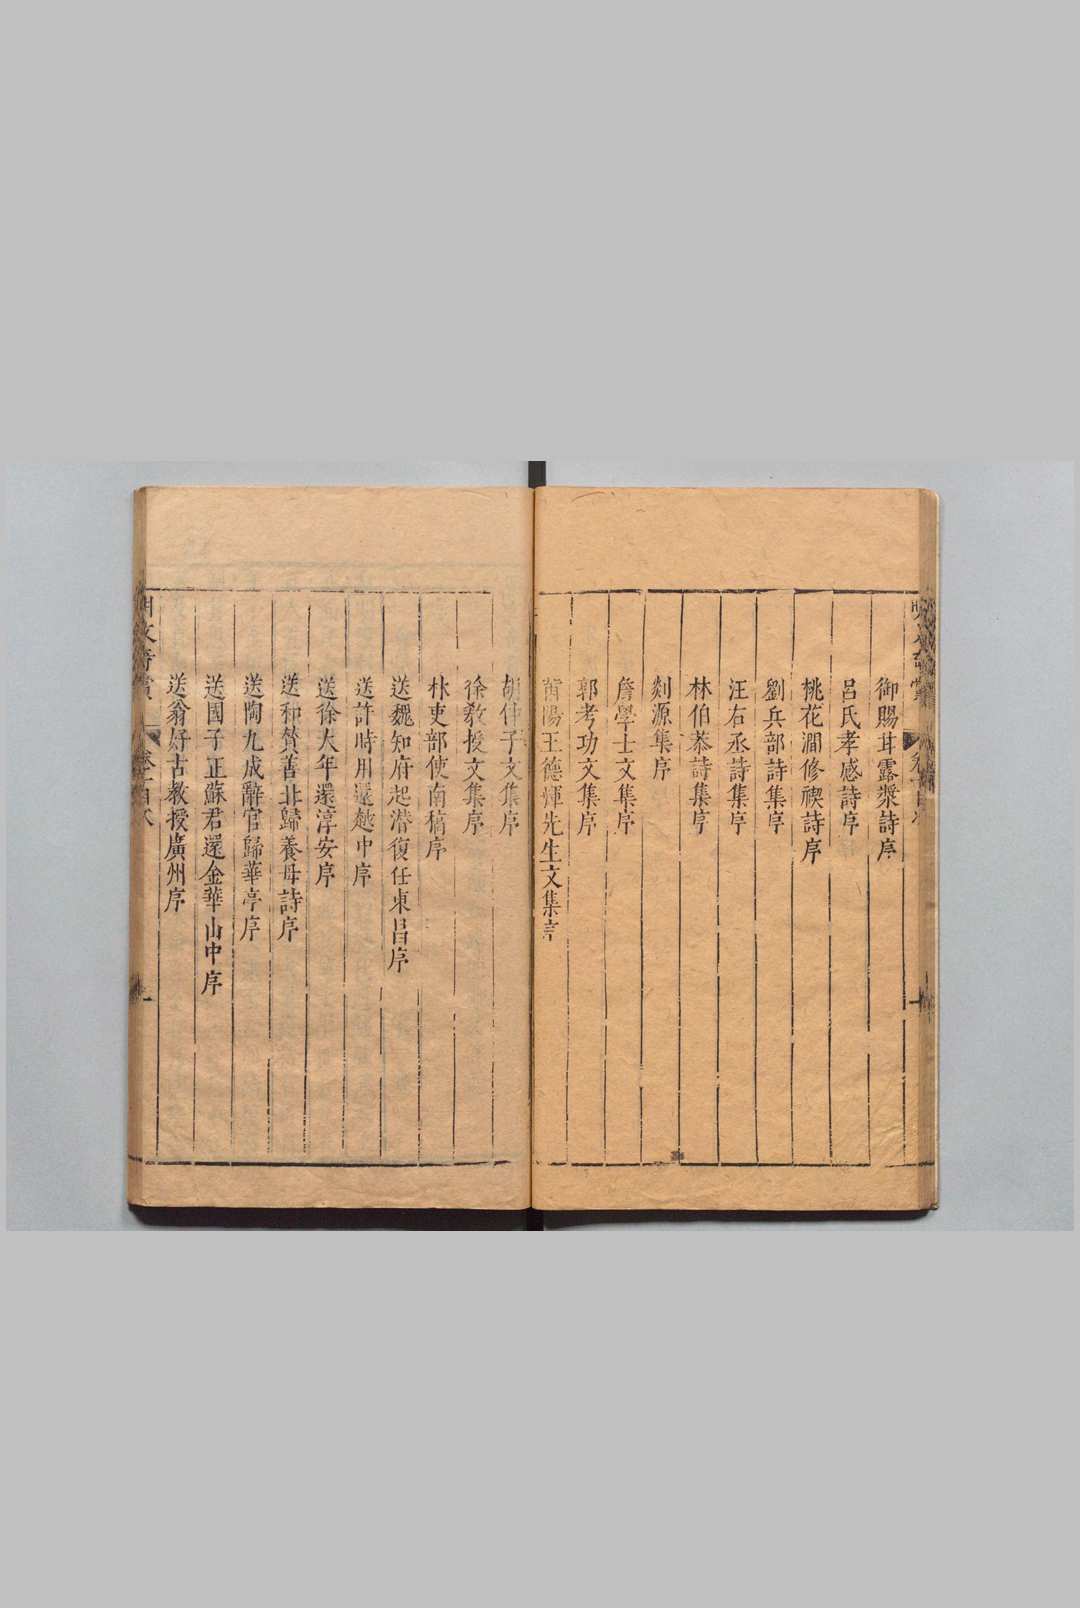 御賜甘露漿詩序
呂氏孝感詩序
桃花澗修禊詩序
劉兵部詩集序
汪右丞詩集序
林伯恭詩集序
剡源集序
詹學士文集序
郭考功文集序
陽王德煇先生文集
胡仲子文集序
徐敎授文集序
朴吏部使南稿序
送魏知府起潜復任東昌序
送許時用還越中序
送徐大年還淳安序
送和贊善北歸養母詩序
送陶九成辭官歸華亭序
送國子正蘇君還金華山中序
送翁好古敎授廣州序